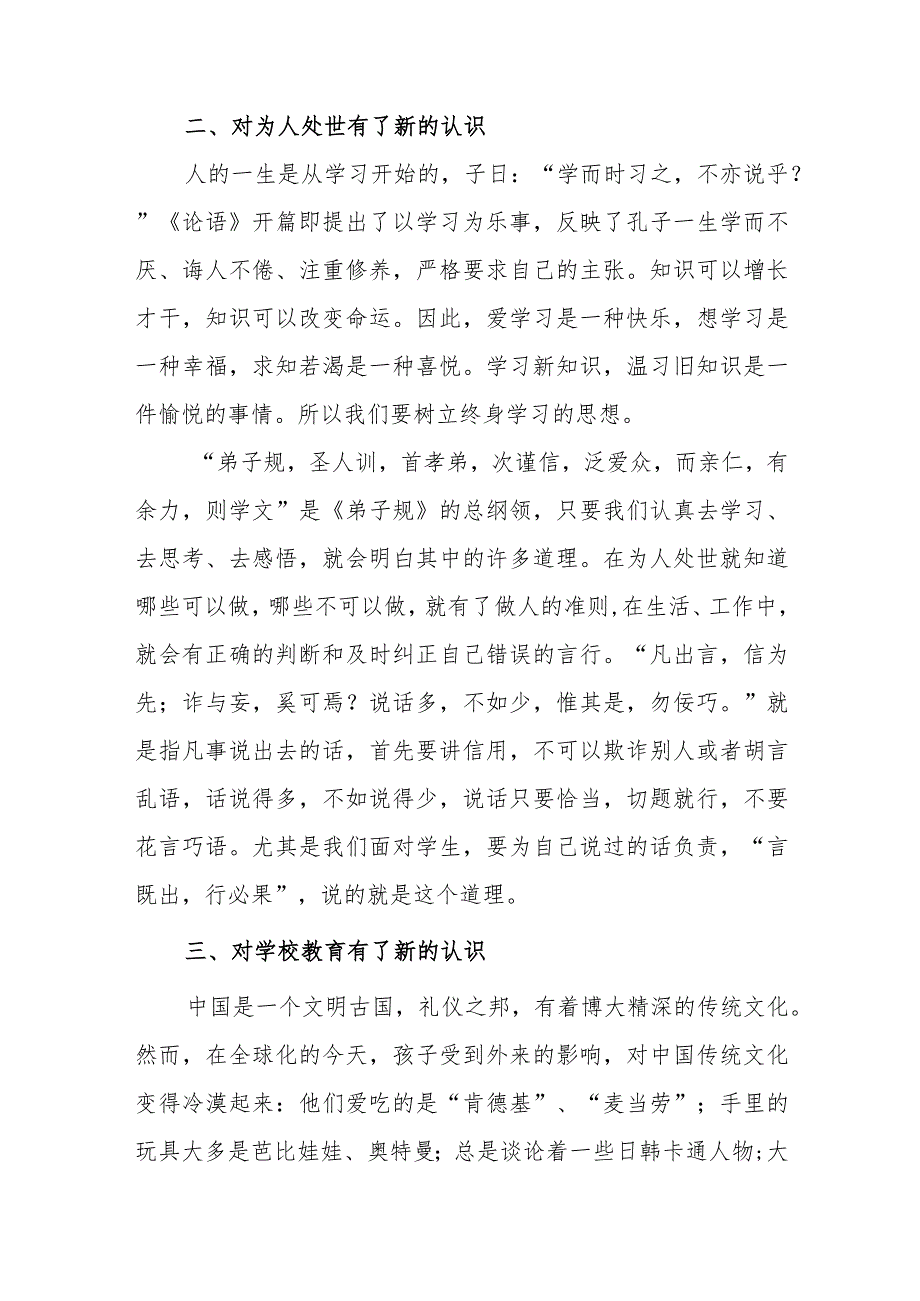 二、对为人处世有了新的认识
人的一生是从学习开始的，子日：“学而时习之，不亦说乎？
”《论语》开篇即提出了以学习为乐事，反映了孔子一生学而不
厌、诲人不倦、注重修养，严格要求自己的主张。知识可以增长
才干，知识可以改变命运。因此，爱学习是一种快乐，想学习是
一种幸福，求知若渴是一种喜悦。学习新知识，温习旧知识是一
件愉悦的事情。所以我们要树立终身学习的思想。
“弟子规，圣人训，首孝弟，次谨信，泛爱众，而亲仁，有
余力，则学文”是《弟子规》的总纲领，只要我们认真去学习、
去思考、去感悟，就会明白其中的许多道理。在为人处世就知道
哪些可以做，哪些不可以做，就有了做人的准则，在生活、工作中，
就会有正确的判断和及时纠正自己错误的言行。“凡出言，信为
先；诈与妄，奚可焉？说话多，不如少，惟其是，勿佞巧。”就
是指凡事说出去的话，首先要讲信用，不可以欺诈别人或者胡言
乱语，话说得多，不如说得少，说话只要恰当，切题就行，不要
花言巧语。尤其是我们面对学生，要为自己说过的话负责，“言
既出，行必果”，说的就是这个道理。
三、对学校教育有了新的认识
中国是一个文明古国，礼仪之邦，有着博大精深的传统文化。
然而，在全球化的今天，孩子受到外来的影响，对中国传统文化
变得冷漠起来：他们爱吃的是“肯德基”、“麦当劳”；手里的
玩具大多是芭比娃娃、奥特曼；总是谈论着一些日韩卡通人物;大